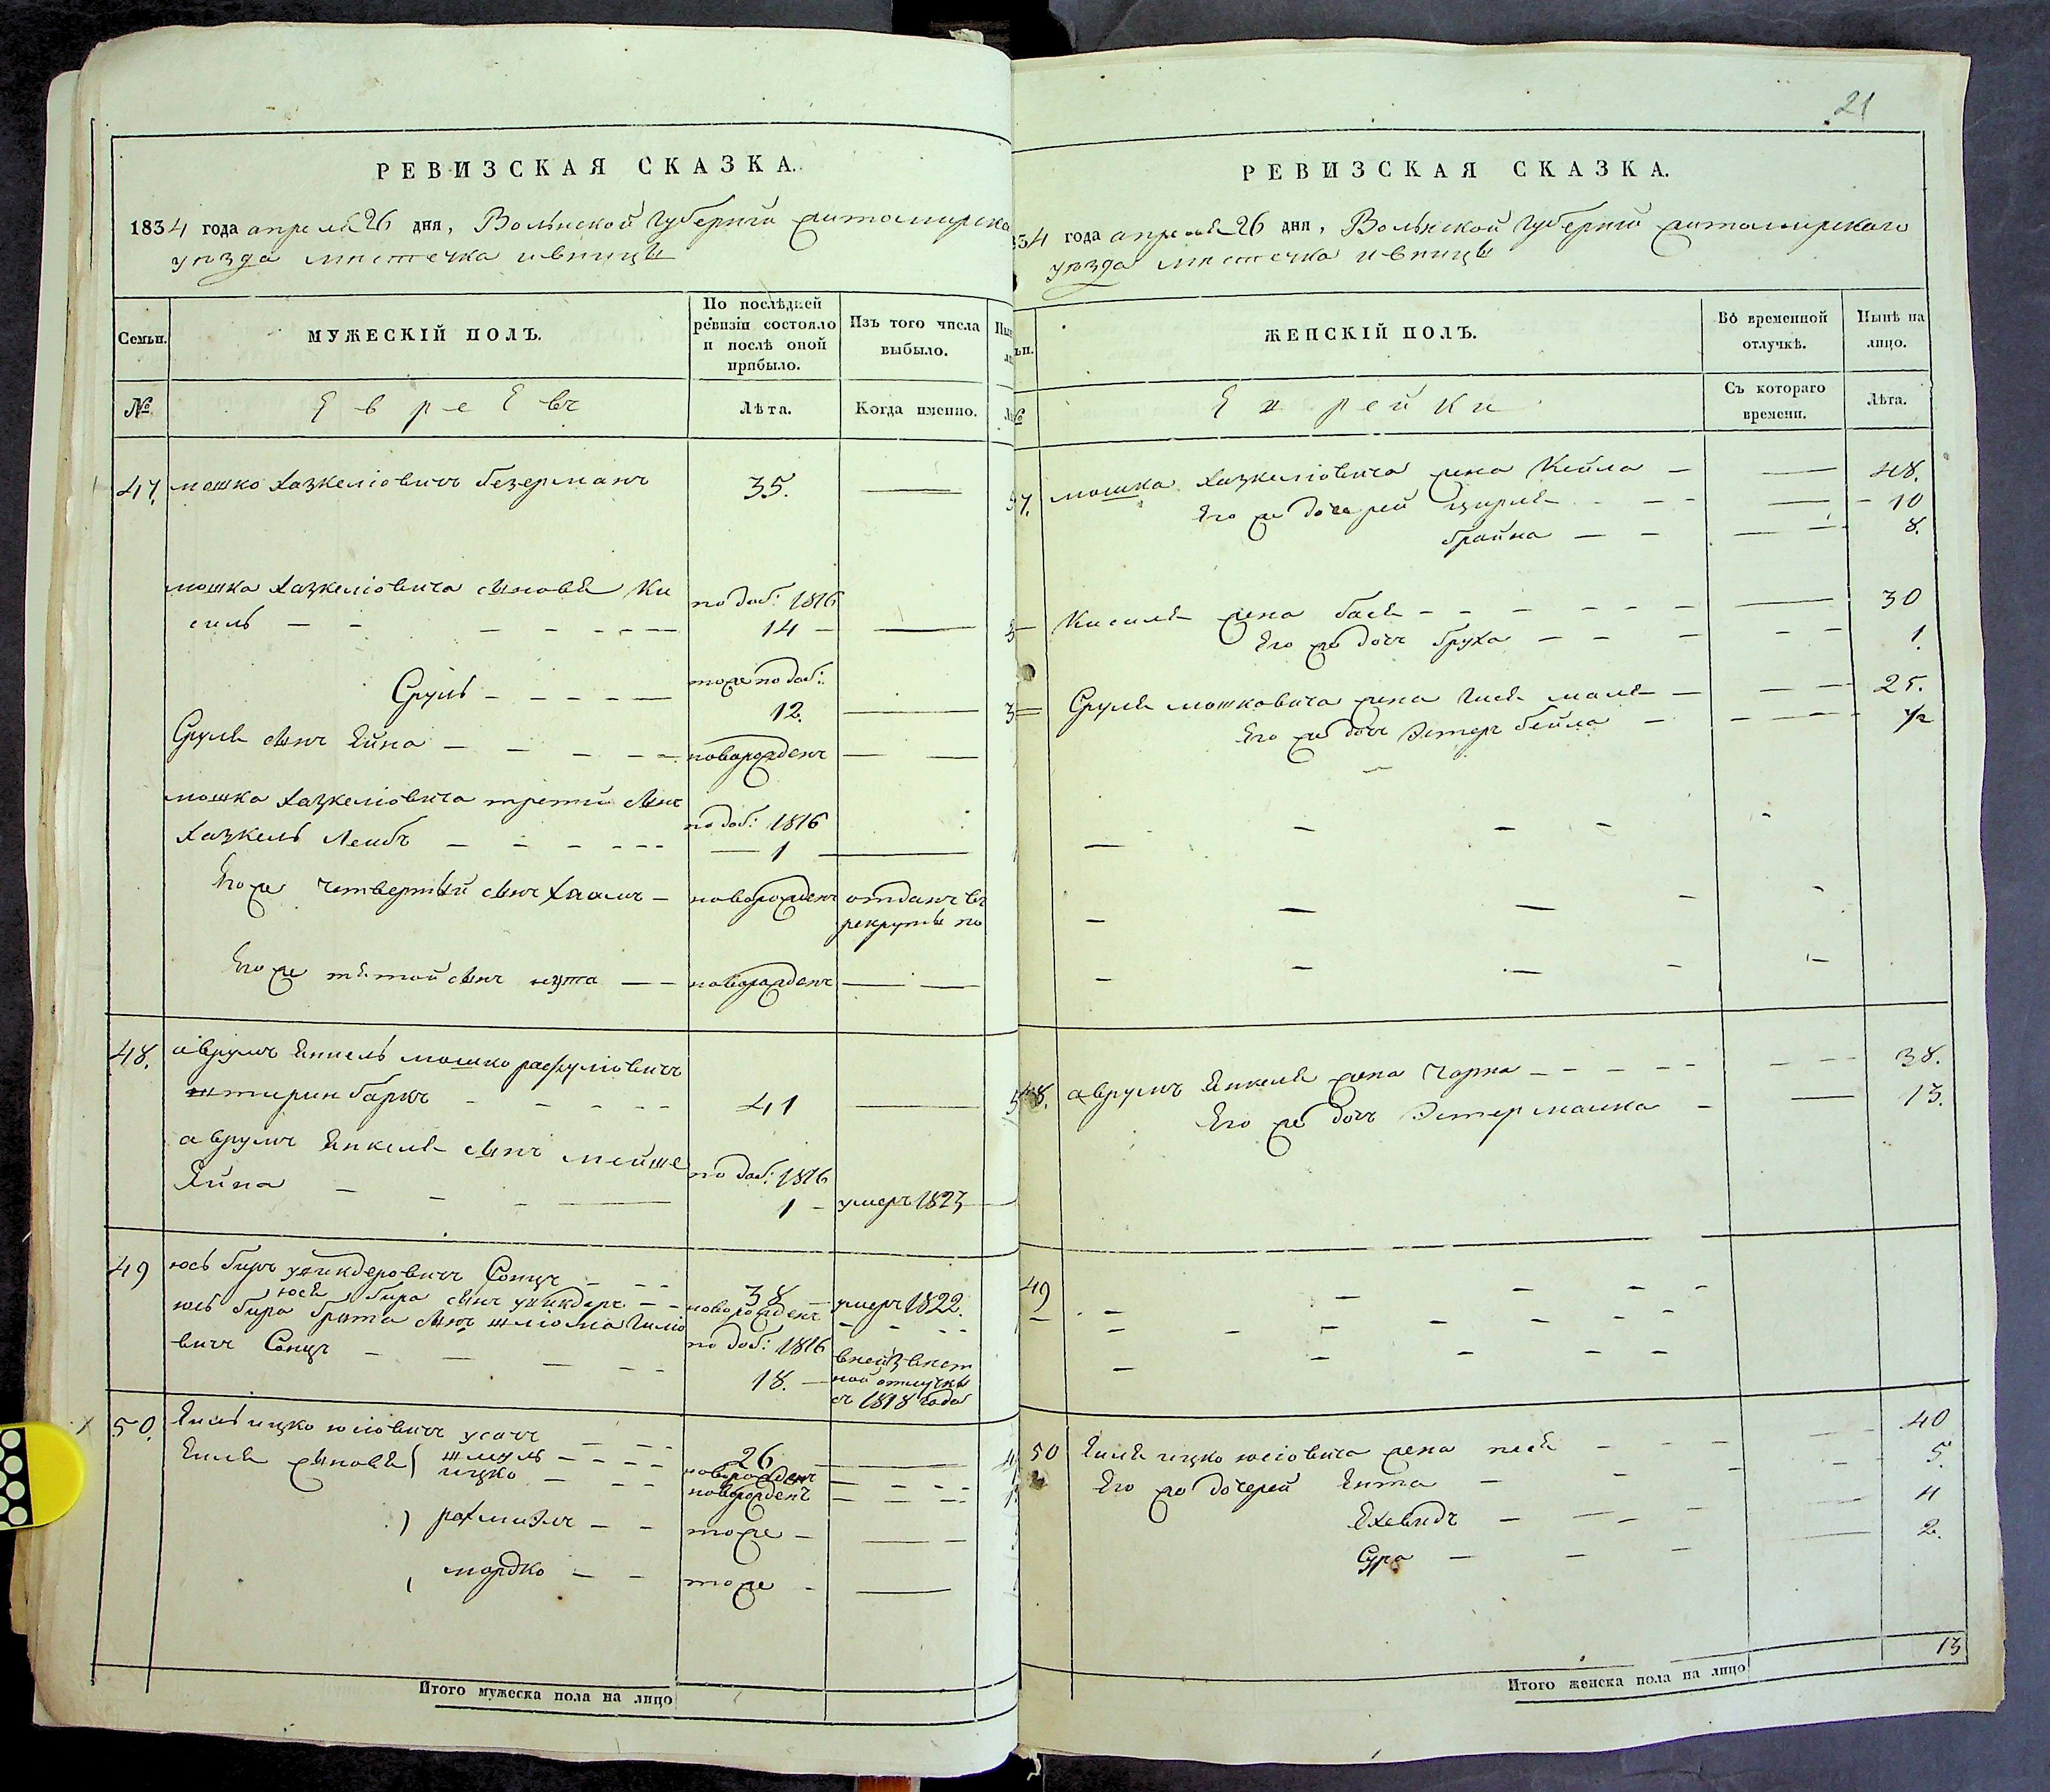 РЕВИЗСКАЯ СКАЗКА.
1834 года апреля 26 дня, Волынской Губернии житомирска
уѣзда мѣстечка ивницы
Семьи.
МУЖЕСКІЙ ПОЛЪ.
По послѣдней
ревизіи состояло
и послѣ оной
прибыло.
Изъ того числа
выбыло.
№
Евреевъ
Лѣта.
Когда именно.
47. мошко Хазкеліовичъ безерманъ 35.
мошка Хазкеліовича сыновя Ки
силь
по доб: 1816
14
Сруль
тоже по доб:
12.
Сруля сынъ Ейна новорожденъ
мошка Хазкеліовича третій сынъ
Хазкель Лейбъ
по доб: 1816
1
Его же четвертый сынъ новорожденъ отданъ въ
рекруты по
Его же пятой сынъ нута новорожденъ
48. аврумъ Янкель мошко
41
аврумъ Янкеля сынъ мейше
Ейна
по доб: 1816
1 умеръ 1823
49 юсь беръ Сонцъ 38 умеръ 1822.
юся бера сынъ новорожденъ
юся бера брата сынъ шліома
вичъ Сонцъ
по доб: 1816
18.
в неизвѣст
ной отлучкѣ
съ 1818 года
50. ицко юсіовичъ усачъ 26
сыновя шмуль новорожденъ
ицко новорожденъ
тоже
мордко тоже
Итого мужеска пола на лицо
21
РЕВИЗСКАЯ СКАЗКА.
34 года апреля 26 дня, Волынской Губернии житомирскаго
уѣзда мѣстечка ивницы
ЖЕНСКІЙ ПОЛЪ.
Во временной
отлучкѣ.
Нынѣ на
лицо.
Еврейки
Съ котораго
времени.
Лѣта.
47. мошка Хазкеліовича жена Кейла 48.
Его же дочерей Цирля 10
брайна 8.
Кисиля жена бася 30
Его же дочь бруха 1.
Сруля мошковича жена маля 25.
Его же дочь Эстеръ бейла 1/2
48. аврумъ Янкеля жена Чарна 38.
Его же дочь Эстер малка 13.
49
50 ицко юсіовича жена песя 40
Его же дочерей Ента 5.
Ехевидъ 4
Сура 2.
Итого женска пола на лицо 13